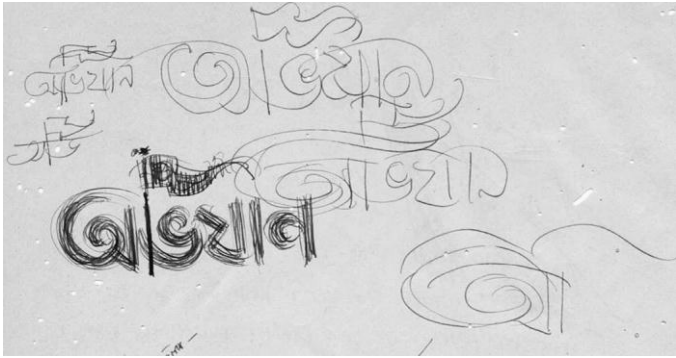 অভিযান
অভিযান
অভি
অভিযান
অভিযান
অ